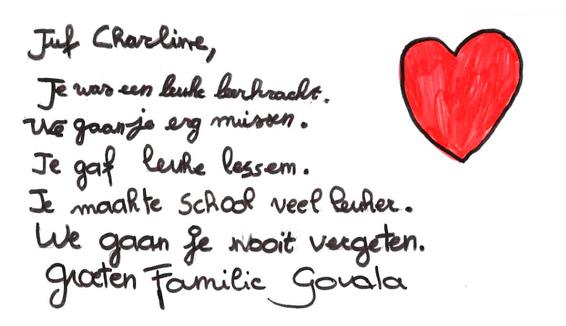 Juf Charline,
Je was een leuke leerkracht.
We gaan je erg missen.
Je gaf leuke lessem.
Je maakte school veel leuker.
We gaan je nooit vergeten.
groeten Familie Govala